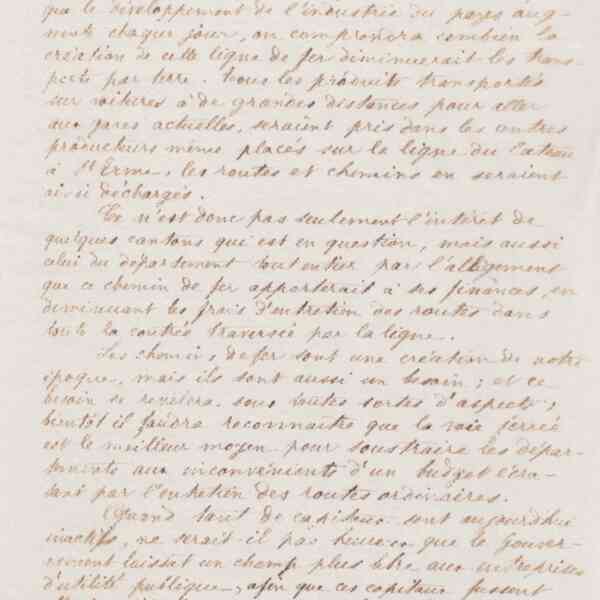 que le développement de l'industrie du pays aug-
mente chaque jour, on comprendra combien la
création de cette ligne de fer diminuerait les trans-
ports par terre. tous les produits transportés
sur voitures à de grandes distances pour aller
aux gares actuelles, seraient pris dans les centres
producteurs même placés sur la ligne du Cateau
à St Erme, les routes et chemins en seraient
ainsi déchargés.
Ce n'est donc pas seulement l'intérêt de
quelques cantons qui est en question, mais aussi
celui du département tout entier par l'allégement
que ce chemin de fer apporterait à ses finances, en
diminuant les frais d'entretien des routes dans
toute la contrée traversée par la ligne.
Les chemins de fer sont une création de notre
époque, mais ils sont aussi un besoin; et ce
besoin se révélera sous toutes sortes d'aspects;
bientôt il faudra reconnaître que la voie ferrée
est le meilleur moyen pour soustraire les dépar-
tements aux inconvénients d'un budget écra-
sant par l'entretien des routes ordinaires.
Quand tant de capitaux sont aujourd'hui
inactifs, ne serait-il pas heureux que le Gouver-
nement laissât un champ plus libre aux entreprises
d'utilité publique, afin que ces capitaux fussent